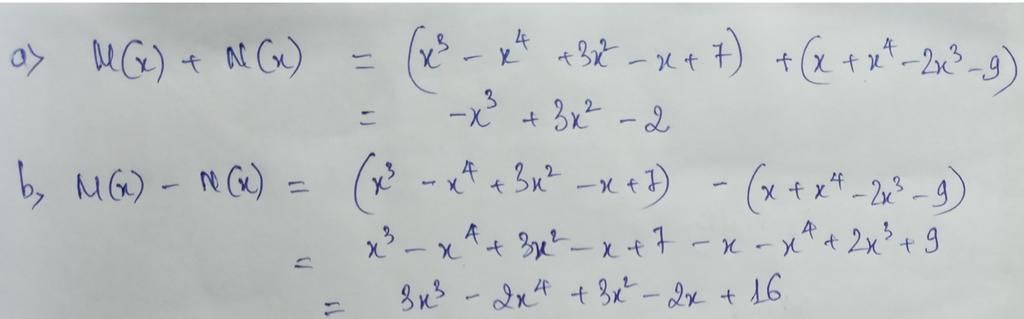 a) M(x) + N(x) = (x³ - x⁴ + 3x² - x + 7) + (x + x⁴ - 2x³ - 9)
= -x³ + 3x² - 2
b, M(x) - N(x) = (x³ - x⁴ + 3x² - x + 7) - (x + x⁴ - 2x³ - 9)
= x³ - x⁴ + 3x² - x + 7 - x - x⁴ + 2x³ + 9
= 3x³ - 2x⁴ + 3x² - 2x + 16